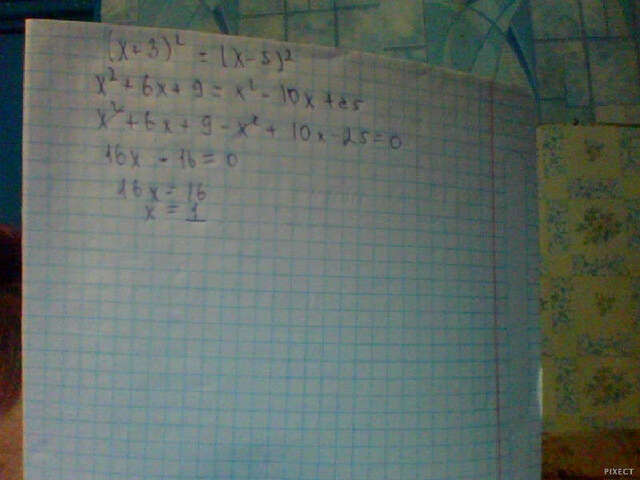 (x+3)² = (x-5)²
x² + 6x + 9 = x² - 10x + 25
x² + 6x + 9 - x² + 10x - 25 = 0
16x - 16 = 0
16x = 16
x = 1
PIXECT